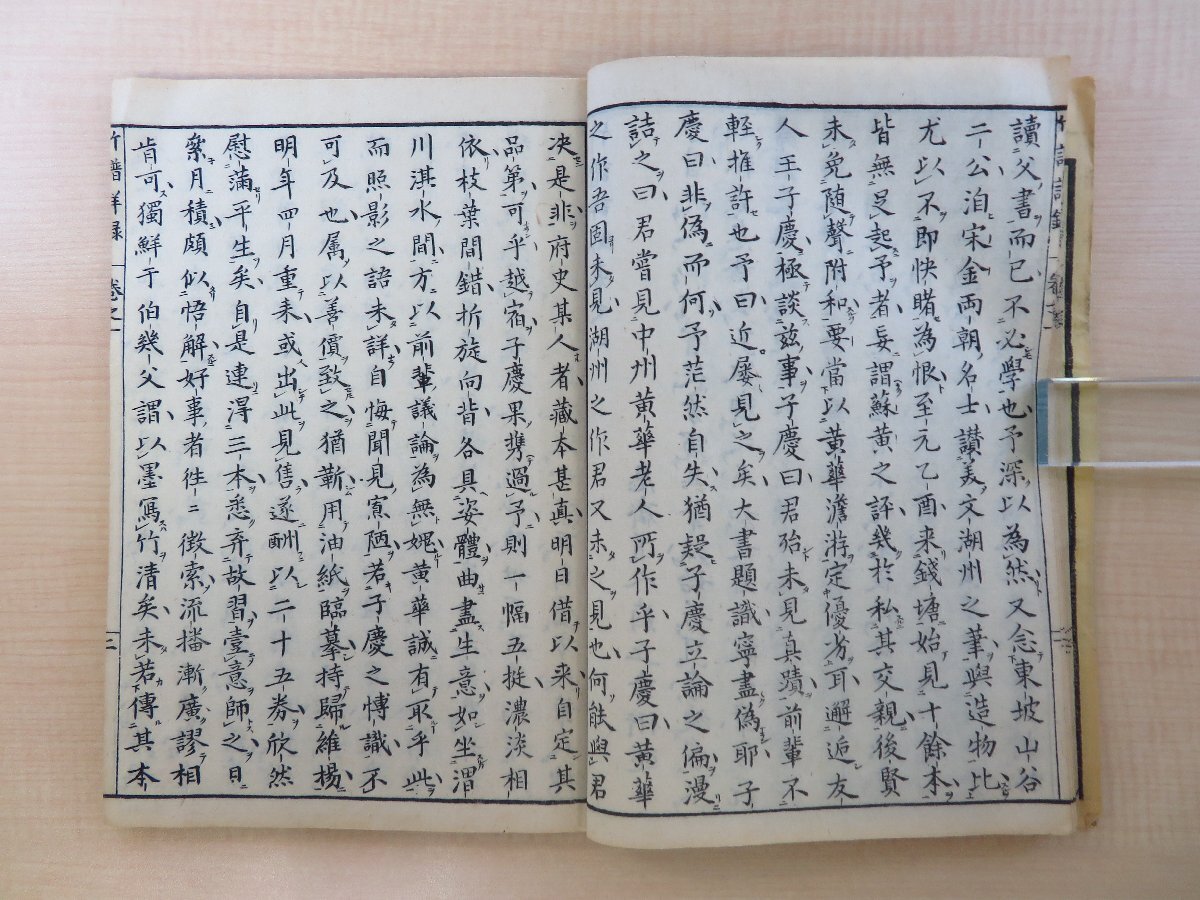 讀父書而已不必學也予深以為然又念東坡山谷
二公洎宋金兩朝名士讃美文湖州之筆與造物比
尤以不即快睹為恨至元乙酉来錢塘始見十餘本
皆無足起予者妄謂蘇黄之評幾於私其交親後賢
未免随聲附和要當以黄華澹游定優劣耳邂逅友
人王子慶極談兹事子慶曰君殆未見真蹟前輩不
輕推許也予曰近屡見之矣大書題識寧盡偽耶子
慶曰非偽而何予茫然自失猶疑子慶立論之偏漫
詰之曰君嘗見中州黄華老人所作乎子慶曰黄華
之作吾固未見湖州之作君又未之見也何能與君
决是非府史某人者藏本甚真明日借以来自定其
品第可乎越宿子慶果携過予則一幅五挺濃淡相
依枝葉間錯折旋向背各具姿體曲盡生意如坐渭
川淇水間方以前輩議論為無媿黄華誠有取乎此
而照影之語未詳自悔聞見寡陋若子慶之博識不
可及也属以善價致之猶靳用油紙臨摹持歸維楊
明年四月重来或出此見售遂酬以二十五券欣然
慰滿平生矣自是連淂三本悉弃故習壹意師之日
絫月積頗似悟解好事者徃〻徴索流播漸廣謬相
肯可獨鮮于伯幾父謂以墨寫竹清矣未若傳其本
竹譜詳録 巻之一 三